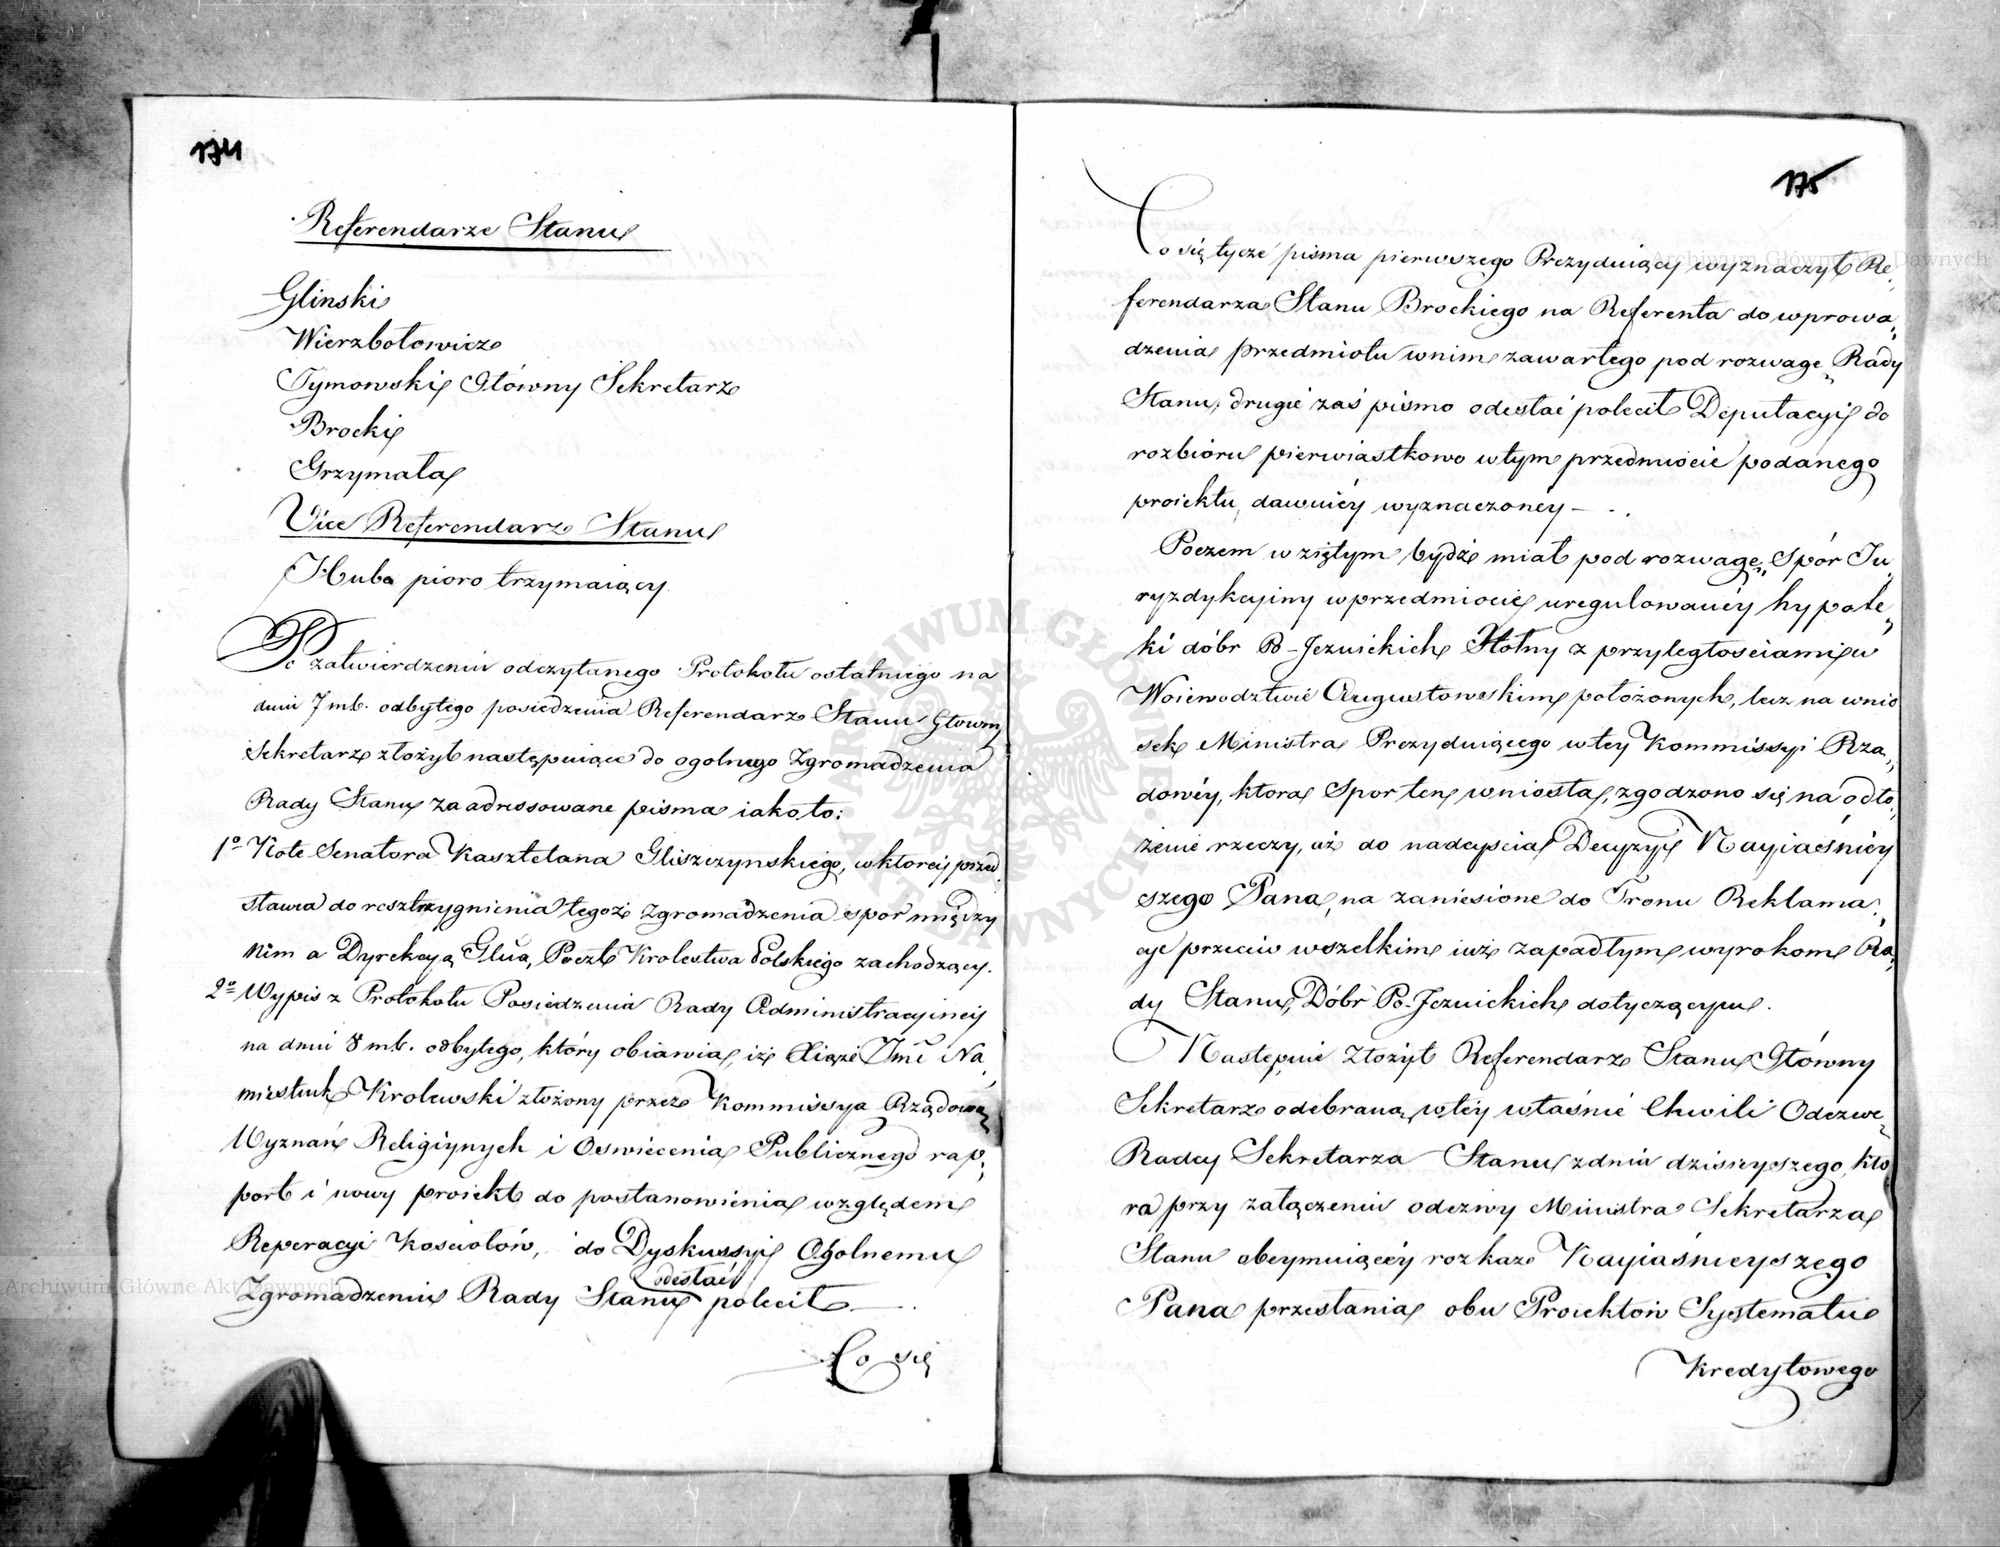 174
Referendarze Stanu
Glinski
Wierzbołowicz
Tymowski Główny Sekretarz
Brocki
Grzymała
Vice Referendarz Stanu
Hube pioro trzymaiący
Po zatwierdzeniu odczytanego Protokołu ostatniego na
dniu 7 mb. odbytego posiedzenia Referendarz Stanu Głowny
Sekretarz złożył następuiące do ogolnego Zgromadzenia
Rady Stanu zaadressowane pisma iako to:
1o Notę Senatora Kasztelana Gliszczynskiego, w ktorey przed
stawia do rozstrzygnienia tegoż Zgromadzenia spor między
nim a Dyrekcyą Glną Poczt Krolestwa Polskiego zachodzący.
2o Wypis z Protokołu Posiedzenia Rady Administracyiney
na dniu 8 mb. odbytego, który obiawia, iż Xiąże Jmć Na
miestnik Krolewski złożony przez Kommissyą Rządową
Wyznań Religiynych i Oswiecenia Publicznego rap,
port i nowy proiekt do postanowienia względem
Reperacyi Kosciołów, do Dyskussyi Ogolnemu
Zgromadzeniu Rady Stanu odesłać polecił.
Co się
175
Co się tycze pisma pierwszego Prezyduiący wyznaczył Re,
ferendarza Stanu Brockiego na Referenta do wprowa,
dzenia przedmiotu w nim zawartego pod rozwagę Rady
Stanu, drugie zaś pismo odesłać polecił Deputacyi do
rozbioru pierwiastkowo w tym przedmiocie podanego
proiektu, dawniéy wyznaczoney – .
Poczem w ziętym bydź miał pod rozwagę Spór Ju,
ryzdykcyiny w przedmiocie uregulowanéy hypote,
ki dóbr Po-Jezuickich Hołny z przyległosciami w
Woiewodztwie Augustowskim położonych, lecz na wnio
sek Ministra Prezyduiącego w tey Kommissyi Rzą,
dowéy, ktora Spor ten wniosła, zgodzono się na odło,
żenie rzeczy, aż do nadeyscia Decyzyi Nayiaśniey
szego Pana, na zaniesione do Tronu Reklama,
cye przeciw wszelkim iuż zapadłym wyrokom Ra,
dy Stanu, Dóbr Po-Jezuickich dotyczącym.
Następnie złożył Referendarz Stanu Główny
Sekretarz odebraną w téy właśnie chwili Odezwę
Radcy Sekretarza Stanu z dnia dzisieyszego, kto
ra przy załączeniu odezwy Ministra Sekretarza
Stanu obeymuiącéy rozkaz Nayiaśnieyszego
Pana przesłania obu Proiektow Systematu
Kredytowego
Archiwum Główne Akt Dawnych
Archiwum Główne Akt Dawnych
ARCHIWUM GŁÓWNE AKT DAWNYCH